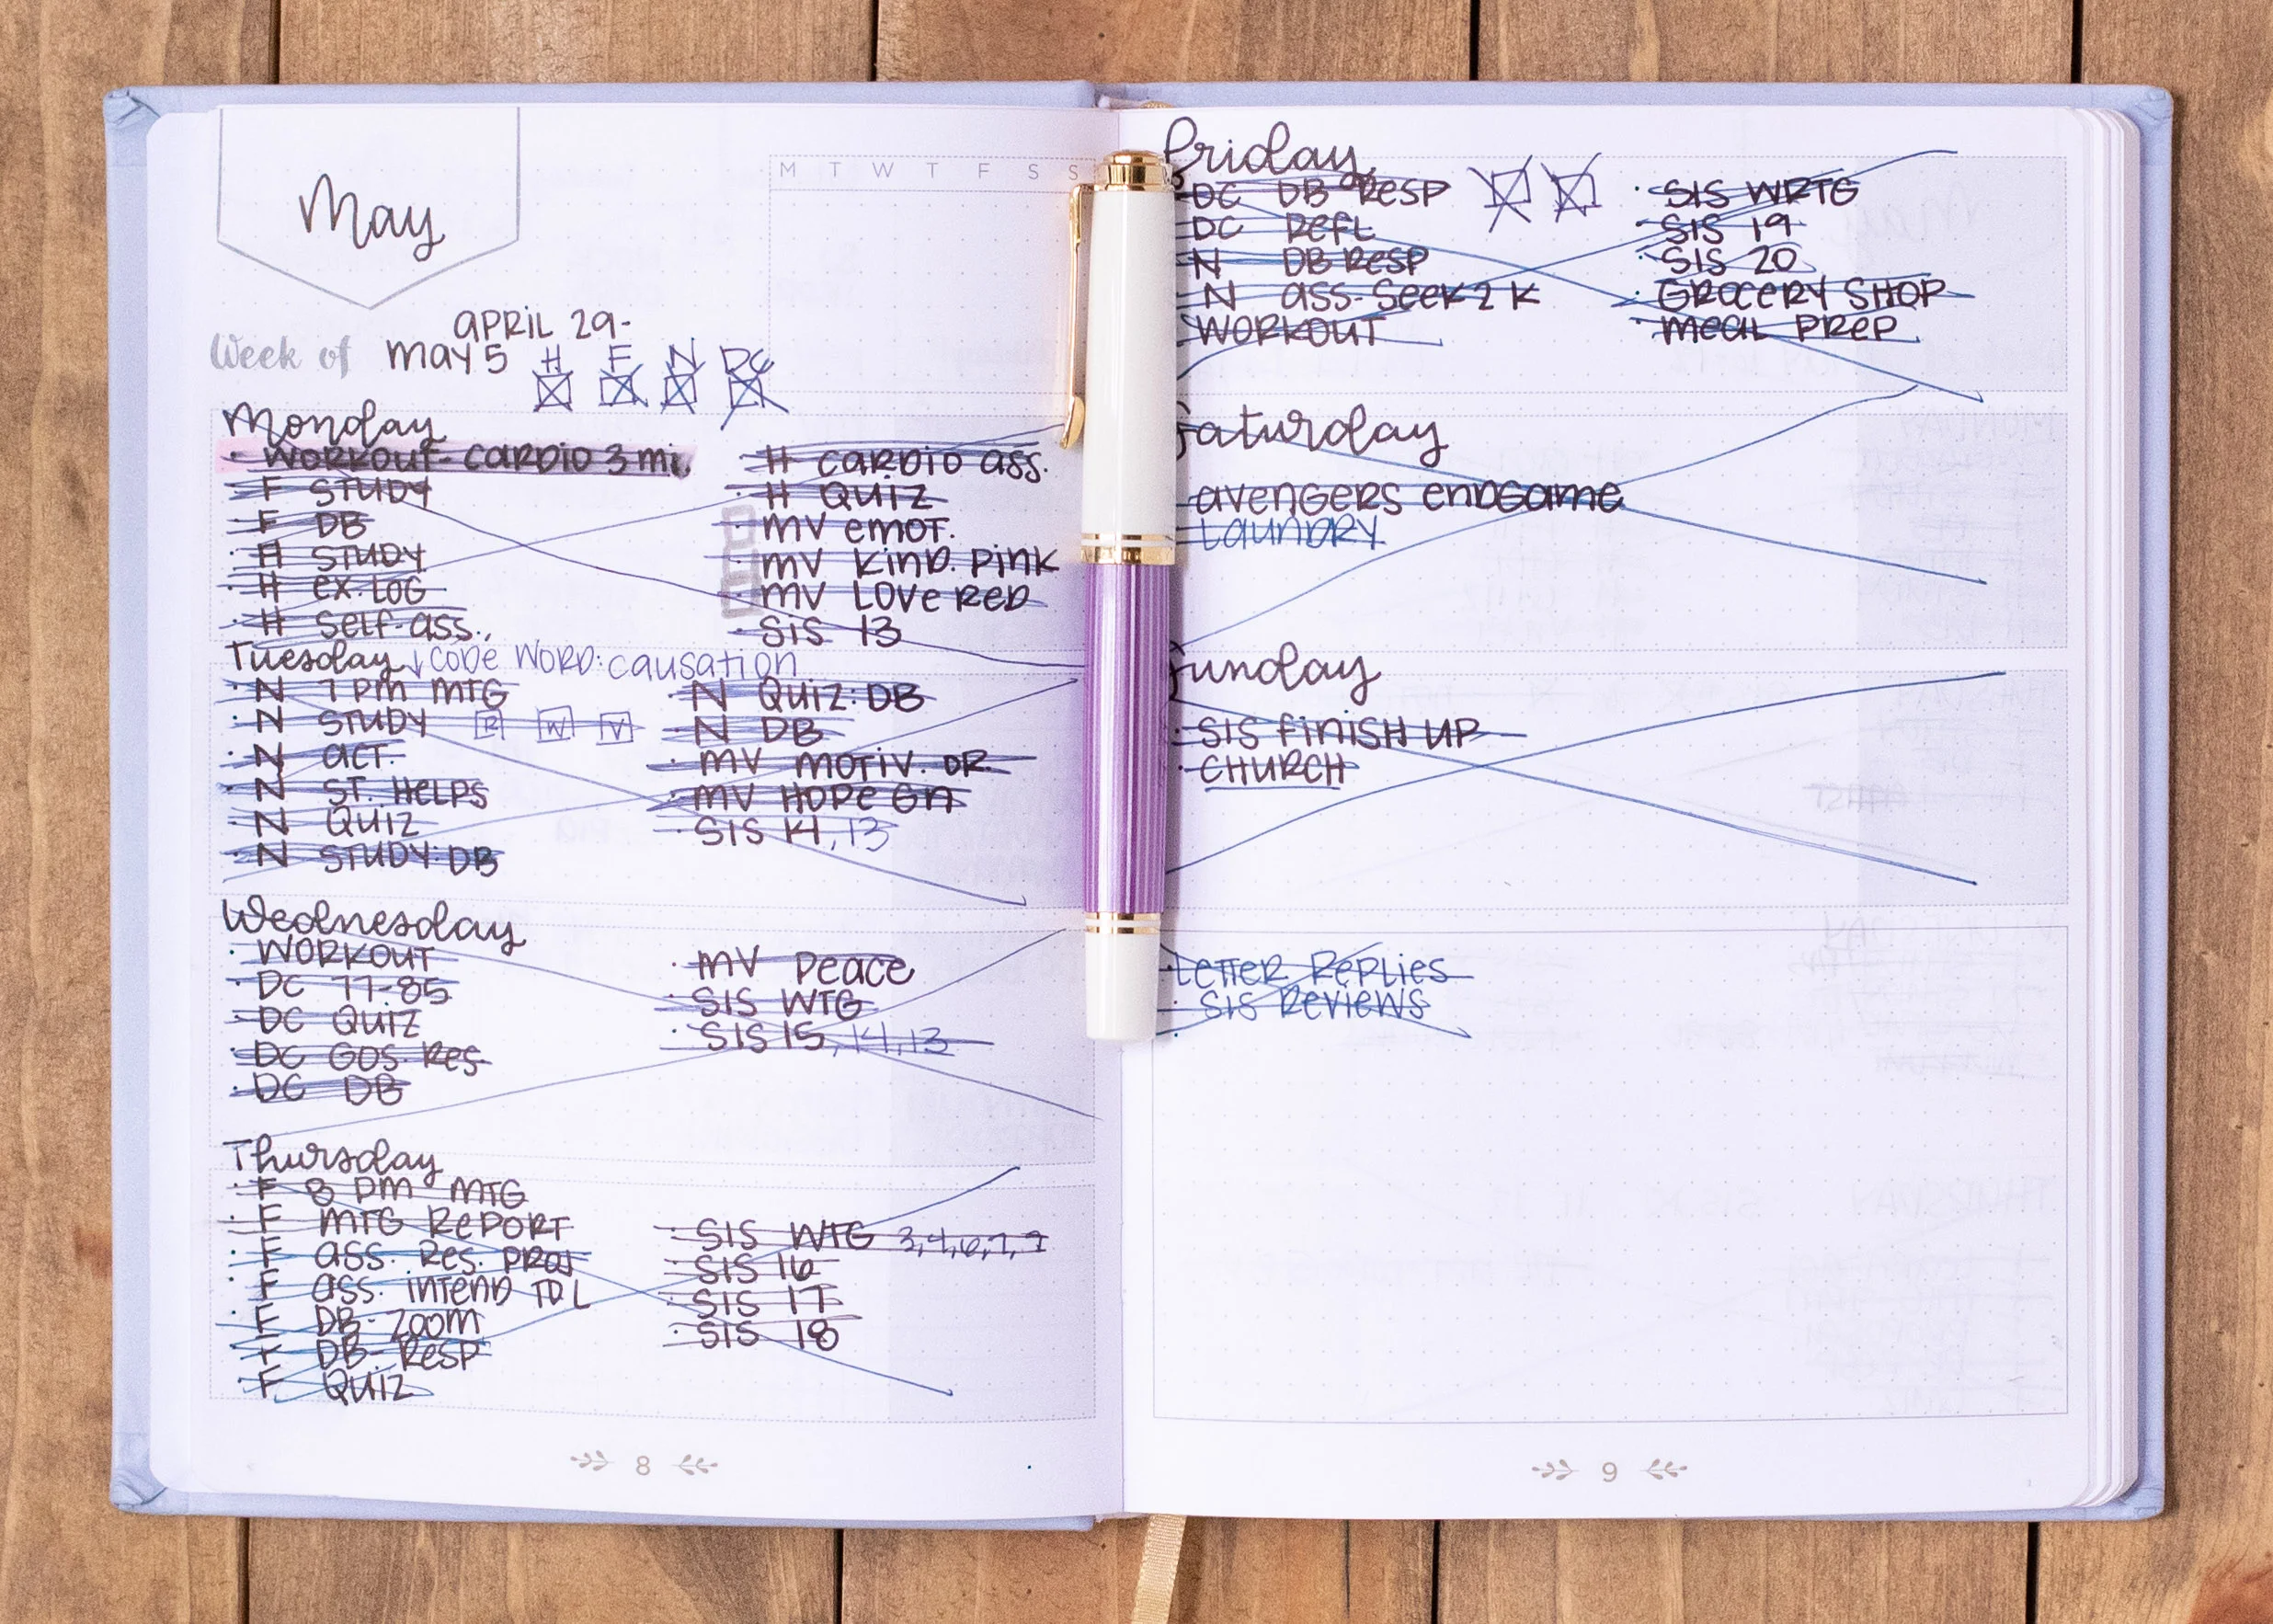 May
M T W T F S S
APRIL 29-
Week of MAY 5
H F N DC
Monday
· WORKOUT- CARDIO 3 mi.
· F STUDY
· F DB
· H STUDY
· H EX. LOG
· H SELF-ASS.
· H CARDIO ASS.
· H QUIZ
· MV EMOT.
· MV KIND. PINK
· MV LOVE RED
· SIS 13
Tuesday ↓ CODE WORD: CAUSATION
· N 7 PM MTG
· N STUDY R W V
· N ACT.
· N ST. HELPS
· N QUIZ
· N STUDY: DB
· N QUIZ: DB
· N DB
· MV MOTIV. OR
· MV HOPE GN
· SIS 14, 13
Wednesday
· WORKOUT
· DC 77-85
· DC QUIZ
· DC GOS. RES.
· DC DB
· MV PEACE
· SIS WTG
· SIS 15, 14, 13
Thursday
· F 8 PM MTG
· F MTG REPORT
· F ASS. RES. PROJ
· F ASS. INTEND TDL
· F DB-ZOOM
· F DB-RESP
· F QUIZ
· SIS WTG 3,4,6,7,9
· SIS 16
· SIS 17
· SIS 18
8
Friday
DC DB RESP
DC REFL
N DB RESP
N ASS- SEEK 2 K
WORKOUT
· SIS WRTG
· SIS 19
· SIS 20
· GROCERY SHOP
· MEAL PREP
Saturday
AVENGERS ENDGAME
LAUNDRY
Sunday
· SIS FINISH UP
· CHURCH
LETTER REPLIES
· SIS REVIEWS
9